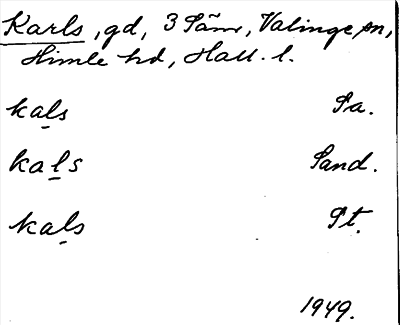 Karls, gd, 3 Särar, Valinge sn,
Himle hd, Hall. l.
kaḻs Sa.
kaḻs Sand.
kaḻs St.
1949.